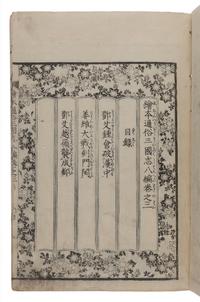 繪本通俗三國志八編卷之二
目録
鄧艾鍾會破漢中
姜維大戰劍門關
鄧艾越嶺襲成都